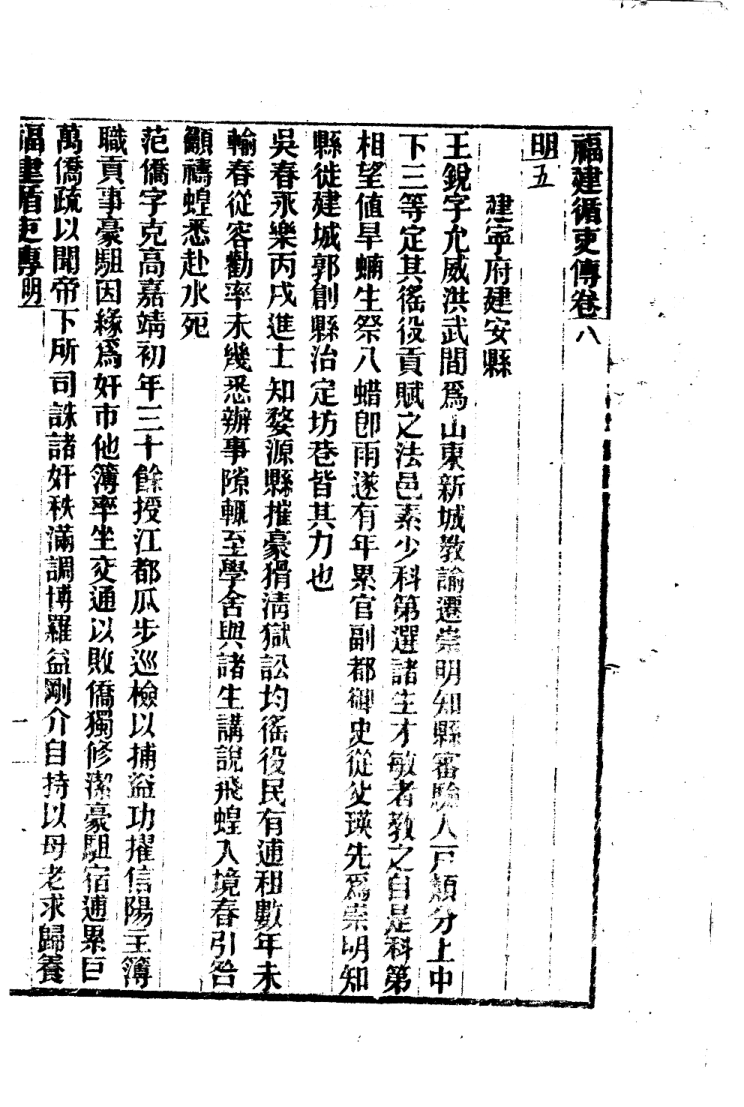 福建循吏傳卷八
明五
建寧府建安縣
王銳字允威洪武間爲山東新城教諭遷崇明知縣審驗人戸類分上中
下三等定其徭役貢賦之法邑素少科第選諸生才敏者教之自是科第
相望値旱蝻生祭八蜡卽雨遂有年累官副都御史從父瑛先爲崇明知
縣徙建城郭創縣治定坊巷皆其力也
吳春永樂丙戌進士知婺源縣摧豪猾淸獄訟均徭役民有逋租數年未
輸春從容勸率未幾悉辦事隙輒至學舍與諸生講說飛蝗入境春引咎
籲禱蝗悉赴水死
范僑字克高嘉靖初年三十餘授江都瓜步巡檢以捕盜功擢信陽主簿
職貢事豪駔因緣爲奸市他簿率坐交通以敗僑獨修潔豪駔宿逋累巨
萬僑疏以聞帝下所司誅諸奸秩滿調博羅益剛介自持以母老求歸養
福建循吏傳 明